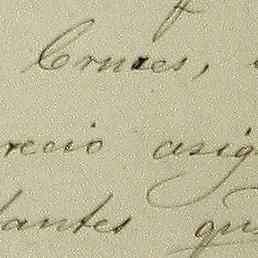 Cruces,
recio asig
tantes qu